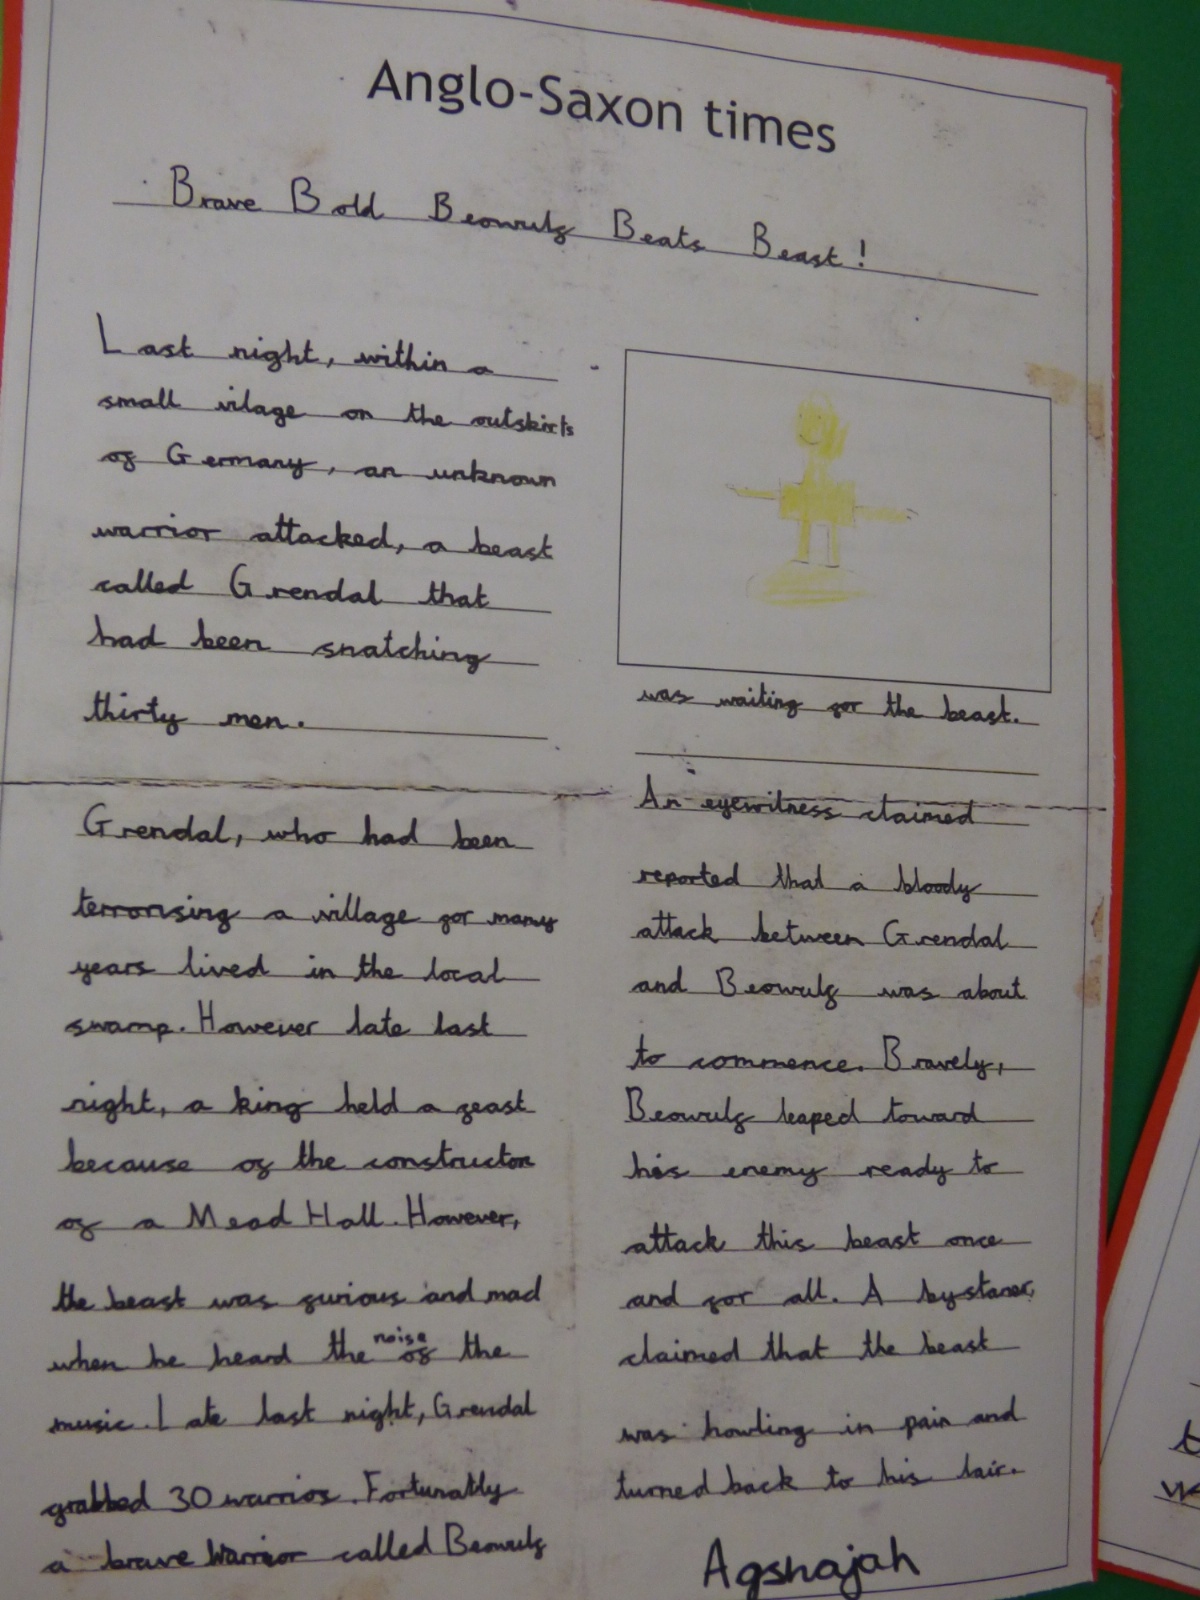 Anglo-Saxon times
Brave Bold Beowulf Beats Beast!
Last night, within a
small vilage on the outskirts
of Germany, an unknown
warrior attacked, a beast
called Grendal that
had been snatching
thirty men.
Grendal, who had been
terrorising a village for many
years lived in the local
swamp. However late last
night, a king held a feast
because of the constructon
of a Mead Hall. However,
the beast was furious and mad
when he heard the noise of the
music. Late last night, Grendal
grabbed 30 warrios. Fortunatly
a brave Warrior called Beowulf
was waiting for the beast.
An eyewitness claimed
reported that a bloody
attack between Grendal
and Beowulf was about
to commence. Bravely,
Beowulf leaped toward
his enemy ready to
attack this beast once
and for all. A bystaner,
claimed that the beast
was howling in pain and
turned back to his lair.
Agshajah